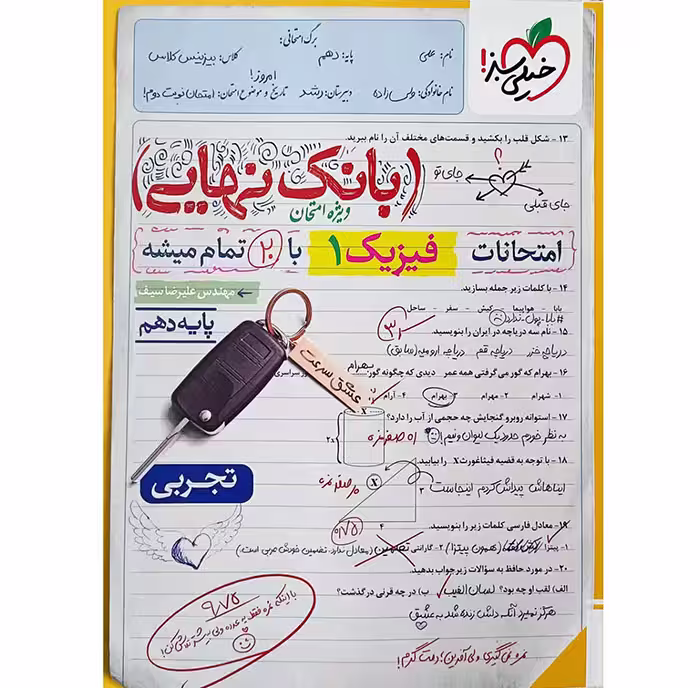 خیلی سبز!
برگ امتحانی:
نام: علی
پایه: دهم
کلاس: بیزینس کلاس
نام خانوادگی: ولی زاده
دبیرستان: رشد
تاریخ و موضوع امتحان: امروز! امتحان نوبت دوم!
۱۳ - شکل قلب را بکشید و قسمت‌های مختلف آن را نام ببرید.
؟
جای تو
جای قبلی
(بانک نهایی)
ویژه امتحان
امتحانات فیزیک ۱ با ۲۰ تمام میشه
۱۴ - با کلمات زیر جمله بسازید.
بابا - هواپیما - کیش - سفر - ساحل
#بابا_پول_ندارد
مهندس علیرضا سیف
پایه دهم
۱۵ - نام سه دریاچه در ایران را بنویسید.
دریاچه خزر دریاچه قم دریاچه ارومیه (سابق)
عشق سرعت
۱۶ - بهرام که گور می‌گرفتی همه عمر دیدی که چگونه گور بهرام
سراسری
۱- شهرام ۲- مهرام ۳- بهرام ۴- آرام
۱۷ - استوانه روبرو گنجایش چه حجمی از آب را دارد؟
x
2x
به نظر خودم حدود یک لیوان و نیم!
۱۸ - با توجه به قضیه فیثاغورث X را بیابید.
ایناهاش پیداش کردم اینجاست
x
۳
۴
تجربی
۱۹ - معادل فارسی کلمات زیر را بنویسید.
۱- پیتزا (همون پیتزا) ۲- گارانتی تضمین (معادل ندارد. تضمین خودش عربی است)
۲۰ - در مورد حافظ به سؤالات زیر جواب بدهید.
الف) لقب او چه بود؟ لسان الغیب ب) در چه قرنی درگذشت؟
هرگز نمیرد آنکه دلش زنده شد به عشق
۹/۷۵